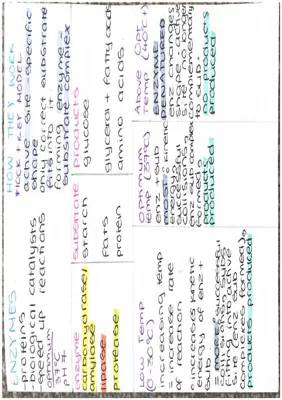 ENZYMES
- proteins
- biological catalysts
- speed up reactions
optimum
37°C
pH 7
HOW THEY WORK
"LOCK & KEY MODEL"
active site - specific
shape
only correct substrate
fits into it
forming enzyme -
substrate complex
enzyme
carbohydrase/
amylase
lipase
protease
substrate
starch
fats
protein
products
glucose
glycerol + fatty acids
amino acids
Low Temp
(0-30°C)
increasing temp
= increase rate
of reaction
• increases kinetic
energy of enz +
sub
= more successful
collisions
site (enz sub
complexes)
products produced
OPTIMUM
temp (37°C)
enz + sub
most kinetic
energy
successful
collisions
enz sub complexes
formed
products
produced
Above Opt
Temp (40°C+)
ENZYME
DENATURED
shape
active
site no longer
complementary
to sub.
no products
produced